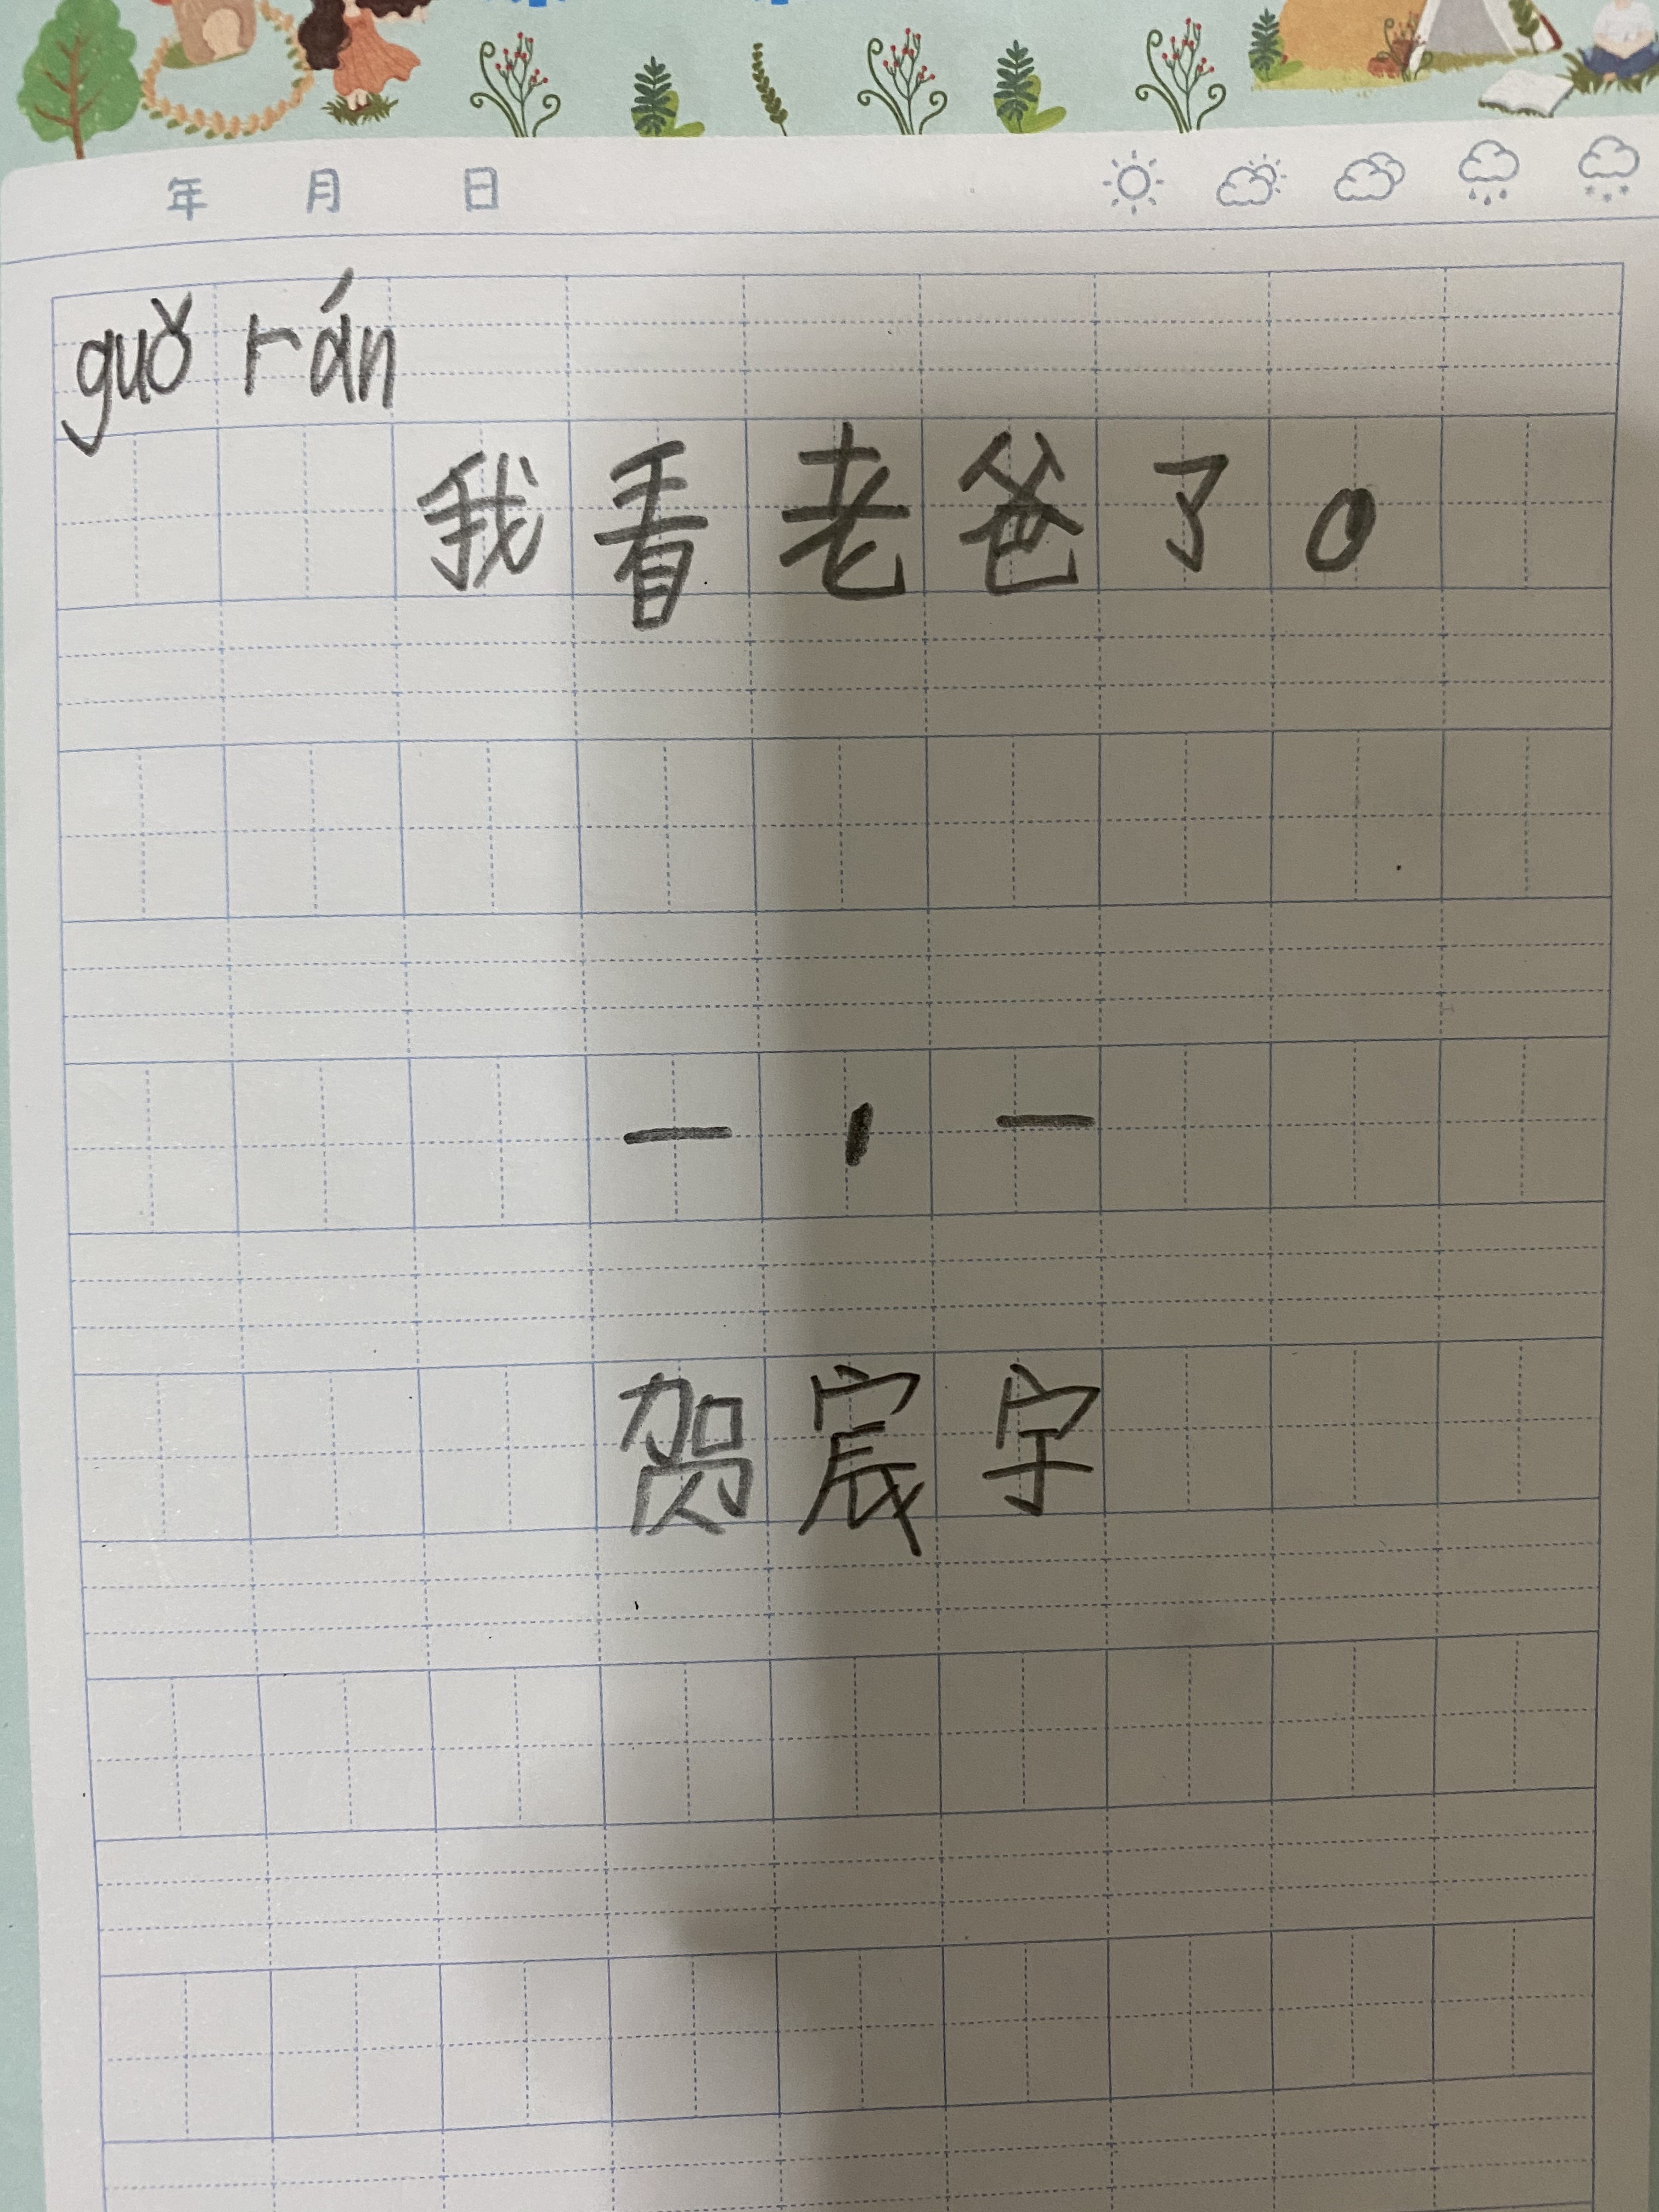 年 月 日
guǒ rán
我看老爸了。
一 , 一
贺宸宇